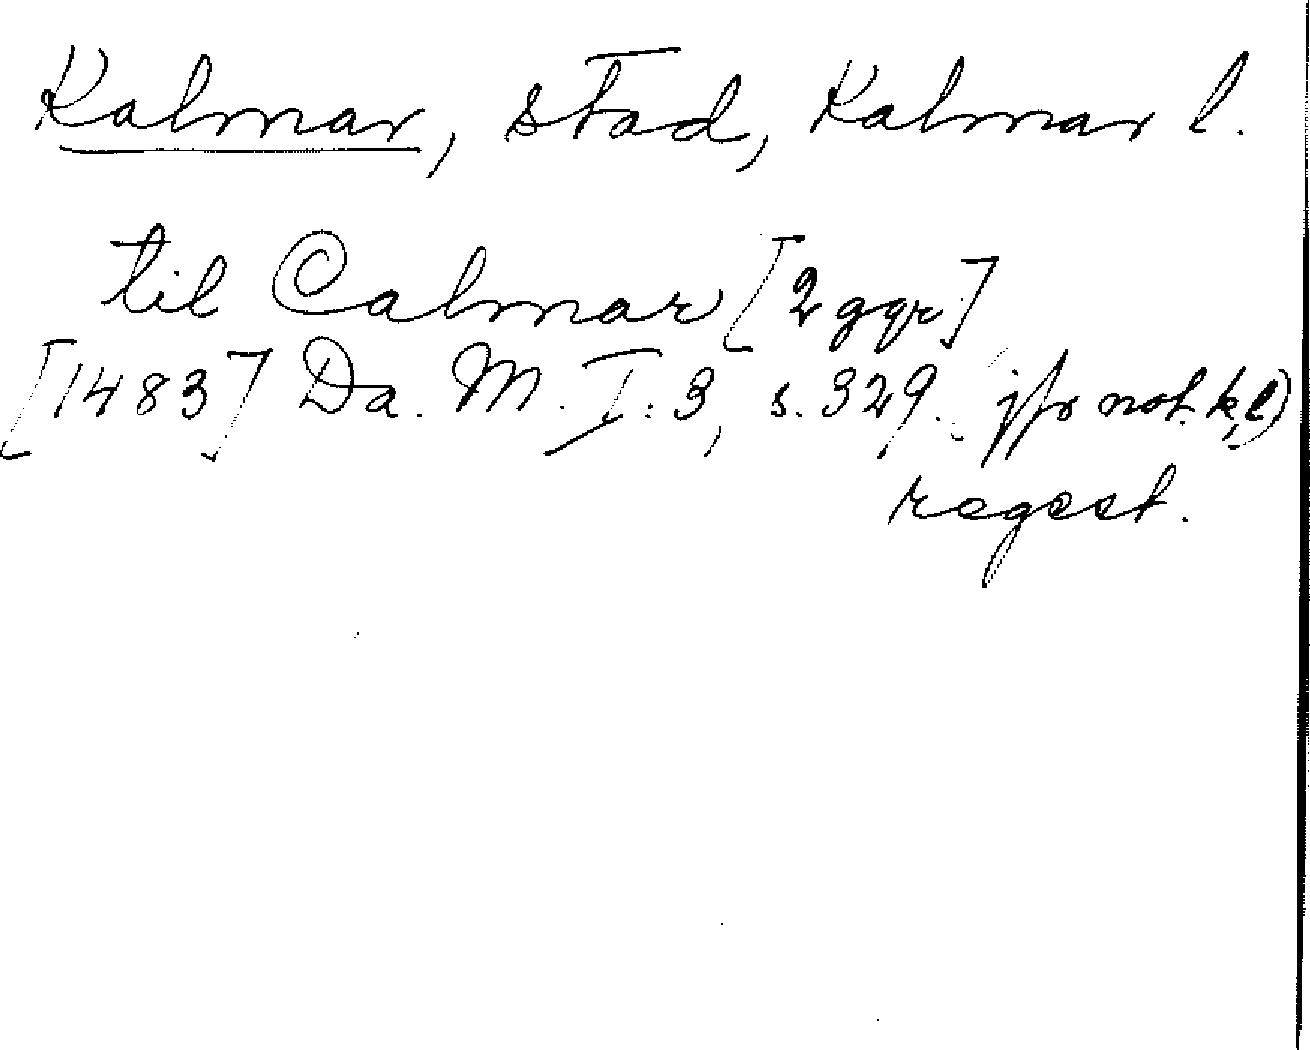 Kalmar, stad, Kalmar l.
til Calmar [2 ggr]
[1483] Da. M. I: 3, s. 329. jfr not. k, l)
regest.